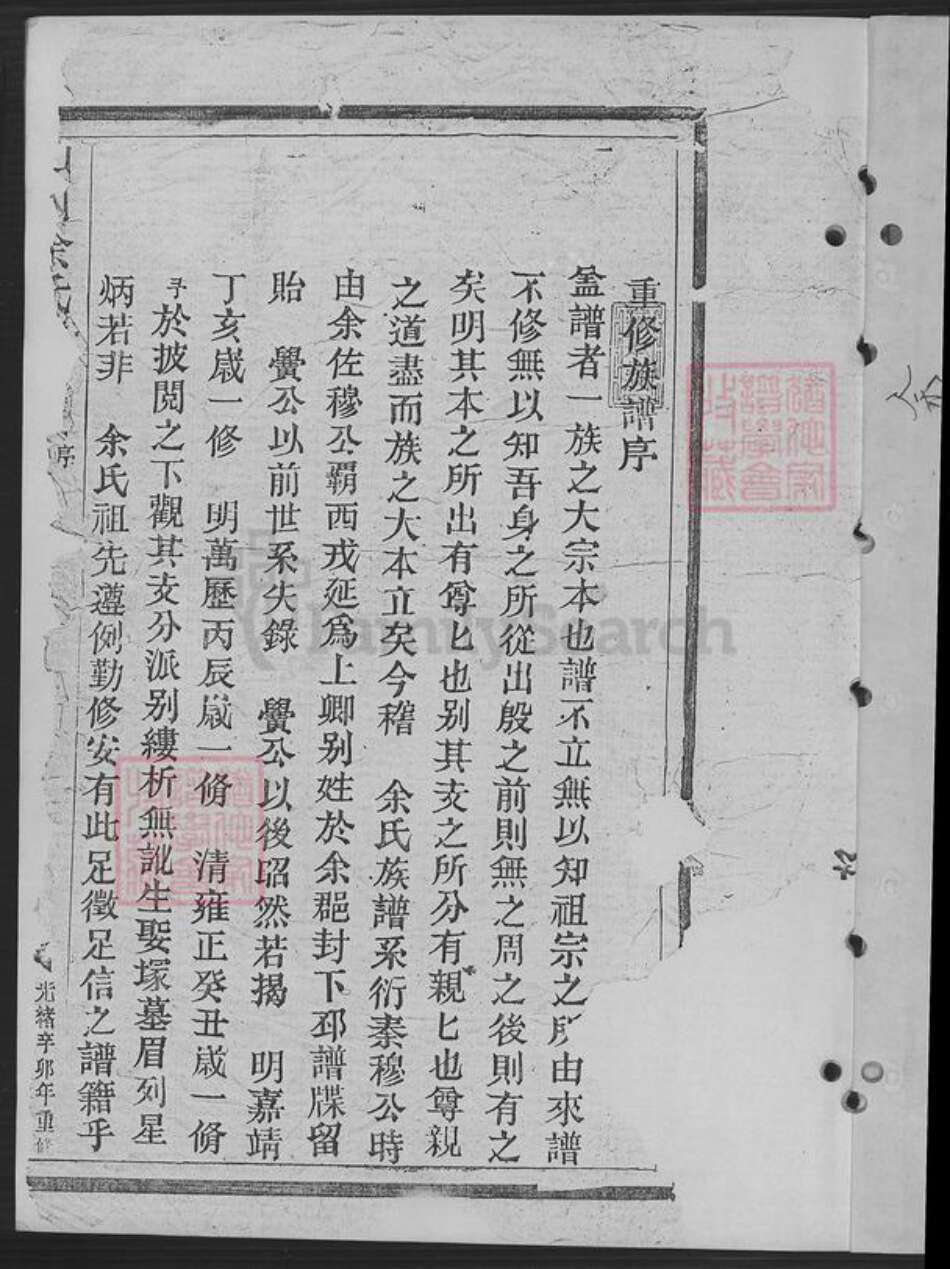 重修族譜序
盖譜者一族之大宗本也譜不立無以知祖宗之所由來譜
不修無以知吾身之所從出殷之前則無之周之後則有之
矣明其本之所出有尊匕也别其支之所分有親匕也尊親
之道盡而族之大本立矣今稽 余氏族譜系衍秦穆公時
由余佐穆公霸西戎延爲上卿别姓於余郡封下邳譜牒留
貽 釁公以前世系失錄 釁公以後昭然若揭 明嘉靖
丁亥歲一修 明萬歷丙辰歲一脩 清雍正癸丑歲一脩
予於披閱之下觀其支分派别縷析無訛生娶塚墓眉列星
炳若非 余氏祖先遵例勤修安有此足徵足信之譜籍乎
余氏
序
光緒辛卯年重修
FamilySearch